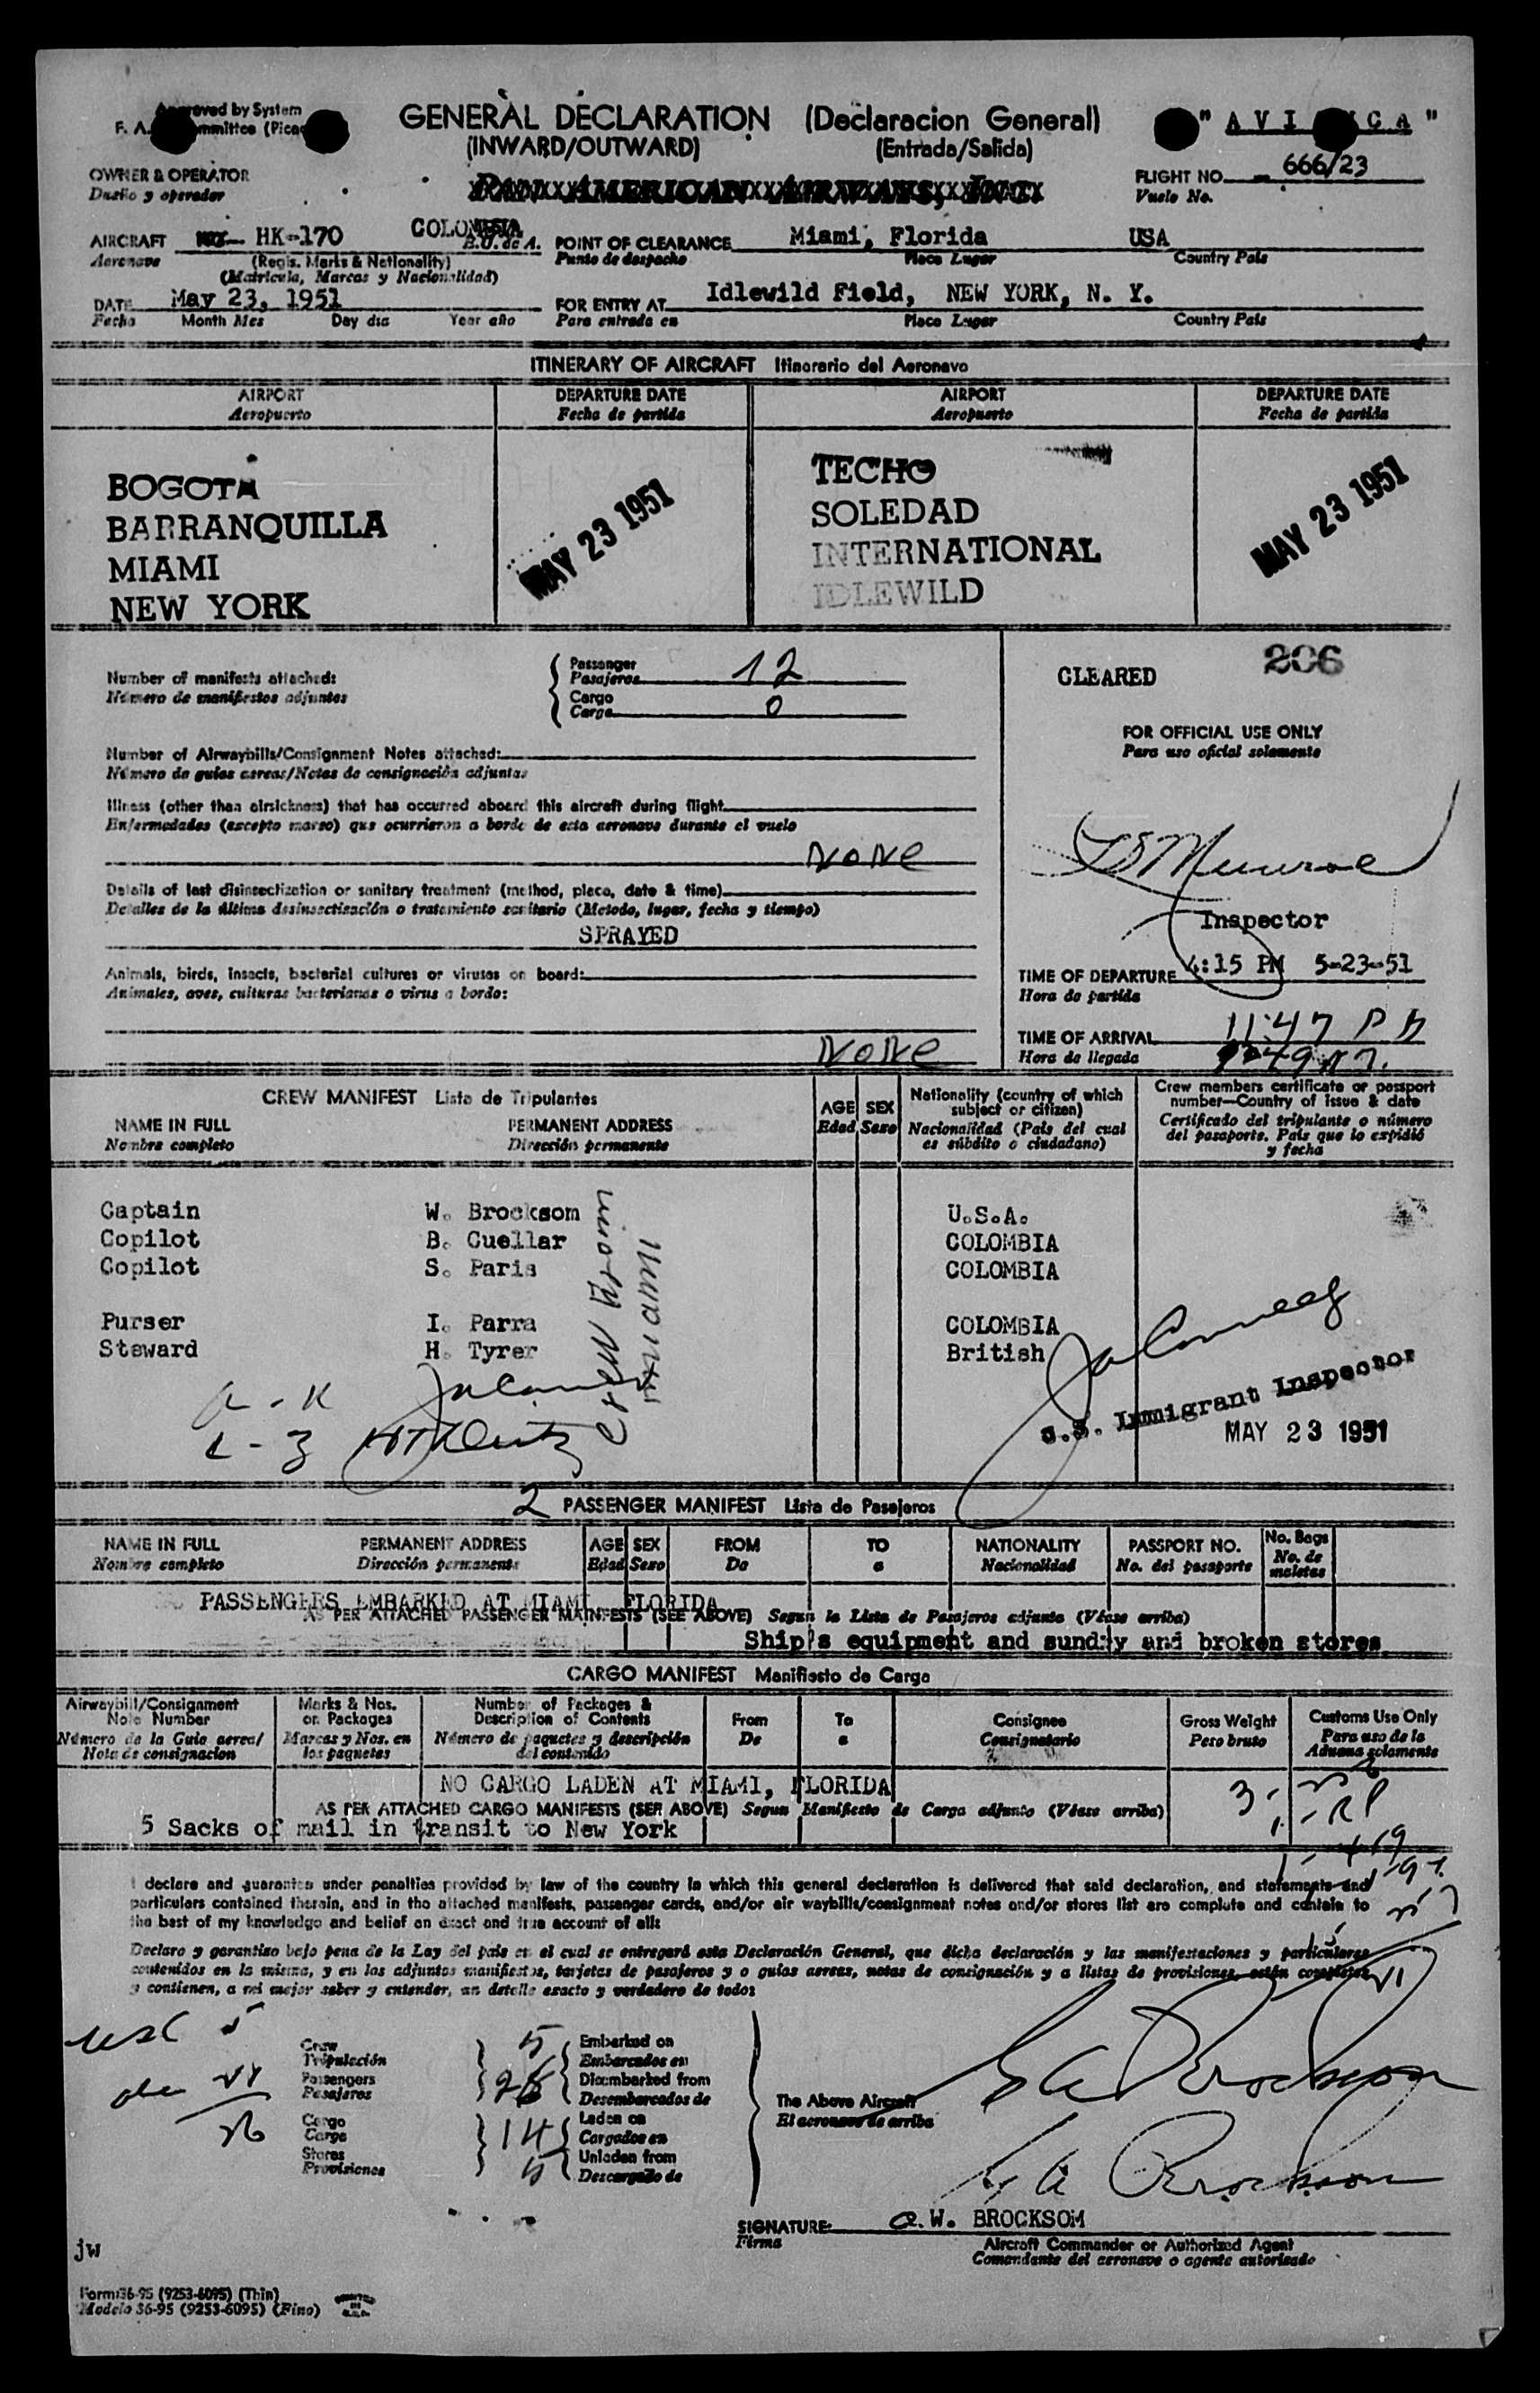 Approved by System
F. A. Committee
GENERAL DECLARATION (Declaracion General)
(INWARD/OUTWARD) (Entrada/Salida)
" A V I CA "
OWNER & OPERATOR
Dueño y operador
PAN AMERICAN AIRWAYS, INC.
FLIGHT NO. 666/23
Vuelo No.
AIRCRAFT HK-170 COLOMBIA
E.U. de A.
Aeronave
(Regis. Marks & Nationality)
(Matricula, Marcas y Nacionalidad)
POINT OF CLEARANCE Miami, Florida USA
Punto de despacho Place Lugar Country País
DATE May 23, 1951
Fecha Month Mes Day dia Year año
FOR ENTRY AT Idlewild Field, NEW YORK, N. Y.
Para entrada en Place Lugar Country País
ITINERARY OF AIRCRAFT Itinerario del Aeronave
AIRPORT DEPARTURE DATE AIRPORT DEPARTURE DATE
Aeropuerto Fecha de partida Aeropuerto Fecha de partida
BOGOTA TECHO
BARRANQUILLA SOLEDAD
MIAMI INTERNATIONAL
NEW YORK IDLEWILD
MAY 23 1951 MAY 23 1951
Number of manifests attached:
Número de manifiestos adjuntos
Passenger
Pasajeros 12
Cargo
Carga 0
CLEARED 206
FOR OFFICIAL USE ONLY
Para uso oficial solamente
Number of Airwaybills/Consignment Notes attached:
Número de guias aereas/Notas de consignación adjuntas
Illness (other than airsickness) that has occurred aboard this aircraft during flight
Enfermedades (excepto mareo) que ocurrieron a bordo de esta aeronave durante el vuelo
None
Details of last disinsectization or sanitary treatment (method, place, date & time)
Detalles de la última desinsectización o tratamiento sanitario (Metodo, lugar, fecha y tiempo)
SPRAYED
Animals, birds, insects, bacterial cultures or viruses on board:
Animales, aves, culturas bacterianas o virus a bordo:
None
Munroe
Inspector
TIME OF DEPARTURE 4:15 PM 5-23-51
Hora de partida
TIME OF ARRIVAL 11:47 P
Hora de llegada
CREW MANIFEST Lista de Tripulantes
NAME IN FULL PERMANENT ADDRESS
Nombre completo Dirección permanente
AGE SEX
Edad Sexo
Nationality (country of which
subject or citizen)
Nacionalidad (País del cual
es súbdito o ciudadano)
Crew members certificate or passport
number—Country of issue & date
Certificado del tripulante o número
del pasaporte. País que lo expidió
y fecha
Captain W. Brocksom U.S.A.
Copilot B. Cuellar COLOMBIA
Copilot S. Paris COLOMBIA
Purser I. Parra COLOMBIA
Steward H. Tyrer British
Crew From
Miami
A - K
L - Z
U.S. Immigrant Inspector
MAY 23 1951
2 PASSENGER MANIFEST Lista de Pasajeros
NAME IN FULL PERMANENT ADDRESS AGE SEX FROM TO NATIONALITY PASSPORT NO. No. Bags
Nombre completo Dirección permanente Edad Sexo De a Nacionalidad No. del pasaporte No. de
maletas
PASSENGERS EMBARKED AT MIAMI, FLORIDA
AS PER ATTACHED PASSENGER MAINFESTS (SEE ABOVE) Segun la Lista de Pasajeros adjunta (Véase arriba)
Ship's equipment and sundry and broken stores
CARGO MANIFEST Manifiesto de Carga
Airwaybill/Consignment
Note Number
Número de la Guia aerea/
Nota de consignacion
Marks & Nos.
on Packages
Marcas y Nos. en
los paquetes
Number of Packages &
Description of Contents
Número de paquetes y descripción
del contenido
From
De
To
a
Consignee
Consignatario
Gross Weight
Peso bruto
Customs Use Only
Para uso de la
Aduana solamente
NO CARGO LADEN AT MIAMI, FLORIDA
AS PER ATTACHED CARGO MANIFESTS (SEE ABOVE) Segun Manifiesto de Carga adjunto (Véase arriba)
5 Sacks of mail in transit to New York
I declare and guarantee under penalties provided by law of the country in which this general declaration is delivered that said declaration, and statements and
particulars contained therein, and in the attached manifests, passenger cards, and/or air waybills/consignment notes and/or stores list are complete and contain to
the best of my knowledge and belief an exact and true account of all:
Declaro y garantizo bajo pena de la Ley del país en el cual se entregará esta Declaración General, que dicha declaración y las manifestaciones y particulares
contenidos en la misma, y en los adjuntos manifiestos, tarjetas de pasajeros y o guias aereas, notas de consignación y a listas de provisiones, están completos
y contienen, a mi mejor saber y entender, un detalle exacto y verdadero de todo:
Crew
Tripulación 5
Passengers
Pasajeros
Cargo
Carga 14
Stores
Provisiones
Embarked on
Embarcados en
Disembarked from
Desembarcados de
Laden on
Cargados en
Unladen from
Descargado de
The Above Aircraft
El aeronave de arriba
Brocksom
Brocksom
SIGNATURE: W. BROCKSOM
Firma
Aircraft Commander or Authorized Agent
Comandante del aeronave o agente autorizado
jw
Form 36-95 (9253-6095) (Thin)
Modelo 36-95 (9253-6095) (Fino)